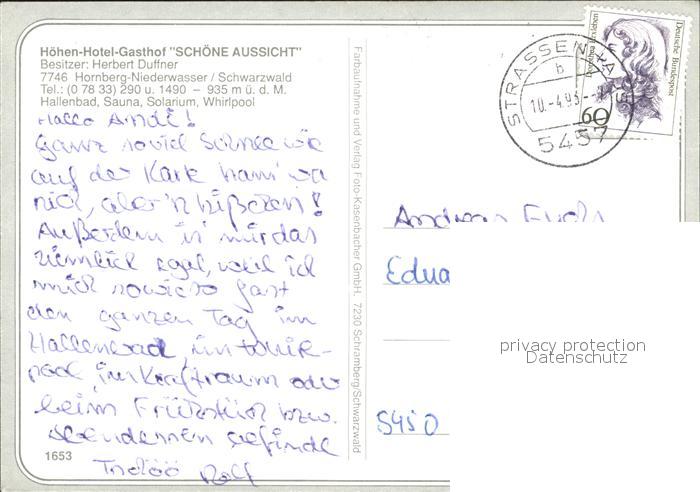 Höhen-Hotel-Gasthof "SCHÖNE AUSSICHT"
Besitzer: Herbert Duffner
7746 Hornberg-Niederwasser / Schwarzwald
Tel.: (0 78 33) 290 u. 1490 – 935 m ü. d. M.
Hallenbad, Sauna, Solarium, Whirlpool
Hallo Andi!
Ganz soviel Schnee wie
auf der Karte ham' wa
nich, aber 'n bißchen!
Außerdem is' mir das
ziemlich egal, weil ich
mich sowieso fast
den ganzen Tag im
Hallenbad, im
pool, im Kraftraum oder
beim Frühstück bzw.
Abendessen befinde
Tschöö Rolf
1653
Farbaufnahme und Verlag Foto-Kasenbacher GmbH. 7230 Schramberg/Schwarzwald
STRASSENHAUS
b
10.-4.93
5457
60
Deutsche Bundespost
Dorothea Erxleben
Andreas Fuchs
Edua
5450
privacy protection
Datenschutz